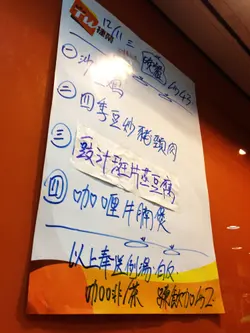 TW
翠華
12/11 三 晚飯 $43
㊀ 沙
㊁ 四季豆炒豬頸肉
㊂ 豉汁班片蒸豆腐
㊃ 咖喱牛腩飯
以上奉送例湯
咖啡/茶 凍飲加$2